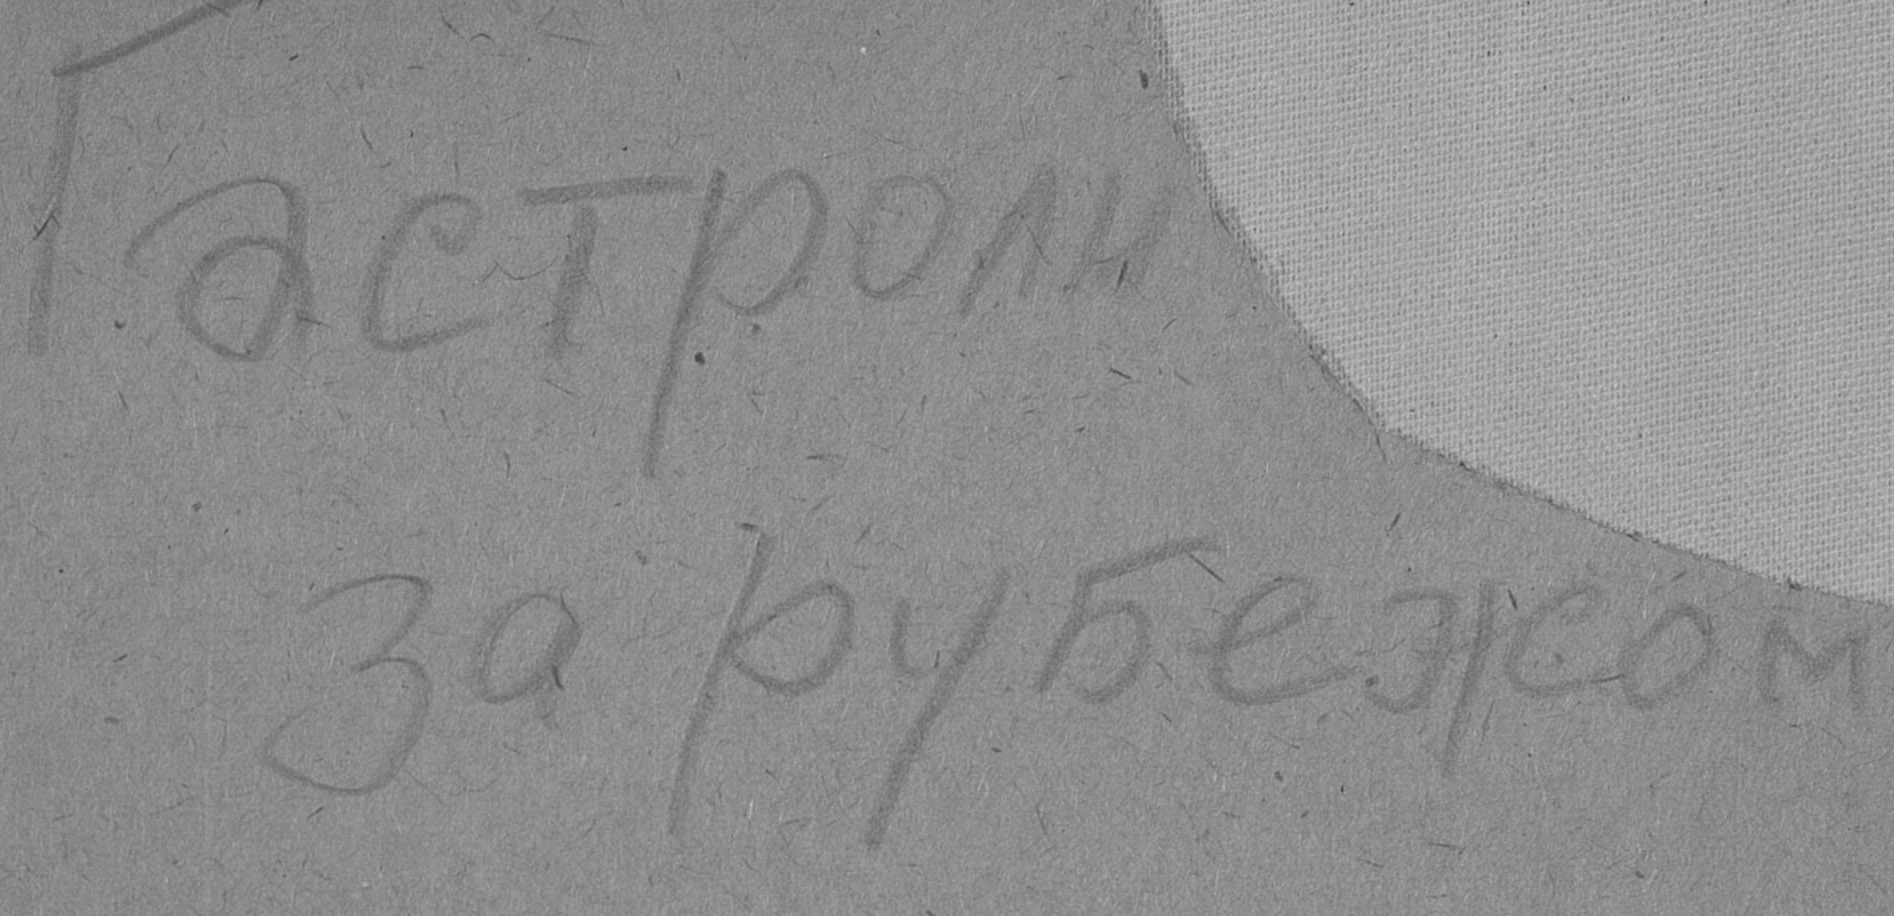 Гастроли
за рубежом